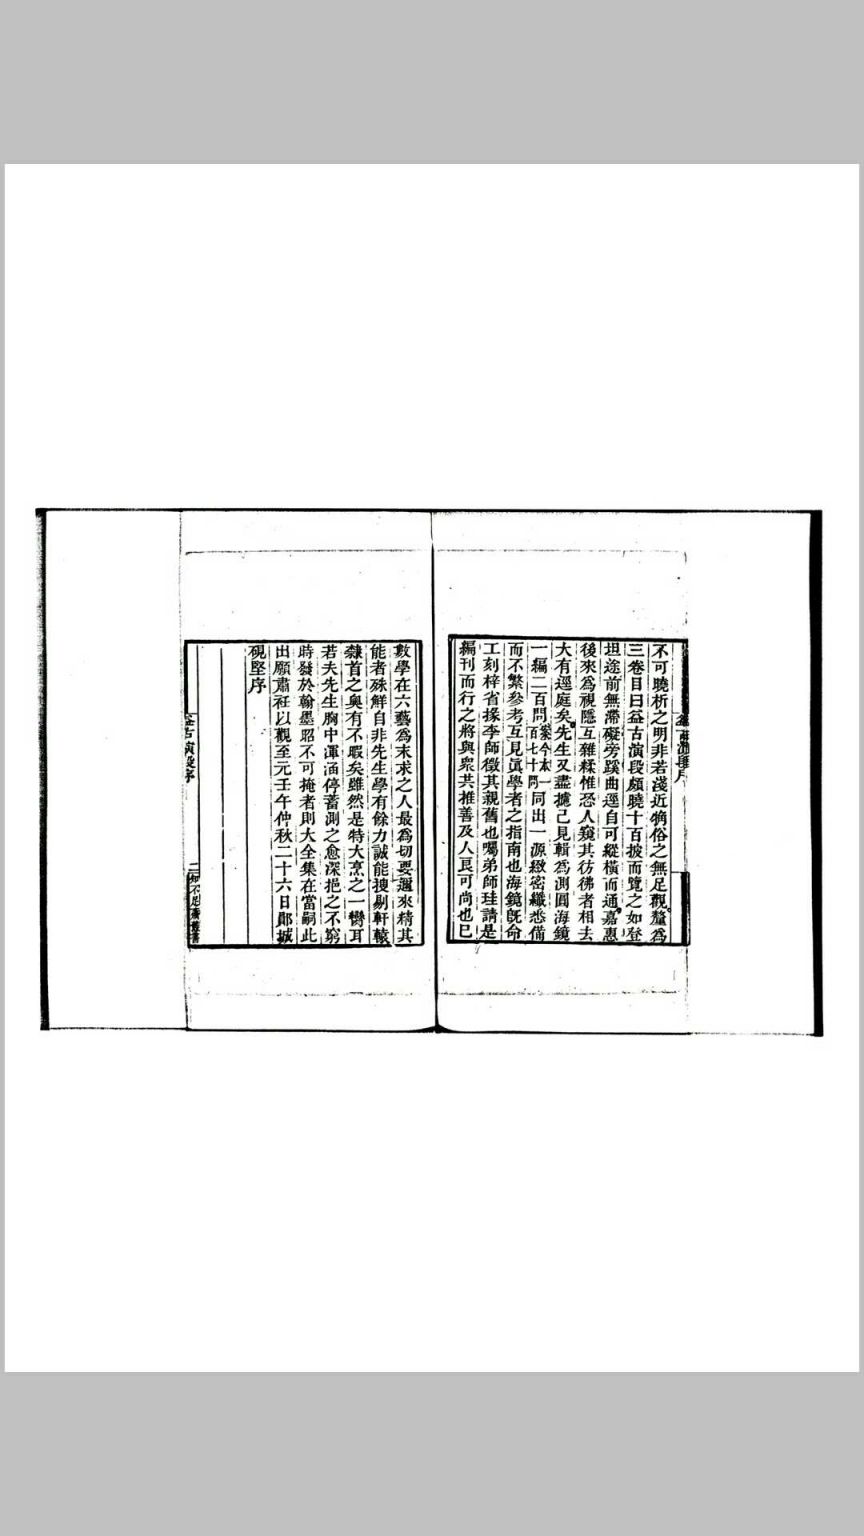 不可曉析之明非若淺近觕俗之無足觀釐爲
三卷目曰益古演段頗曉十百披而覽之如登
坦途前無滯礙旁蹊曲逕自可縱橫而通嘉惠
後來爲視隱互雜糅惟恐人窺其彷彿者相去
大有逕庭矣先生又盡攄己見輯爲測圓海鏡
一編二百問案今本一百七十問同出一源緻密纖悉備
而不繁參考互見眞學者之指南也海鏡旣命
工刻梓省掾李師徵其親舊也囑弟師珪請是
編刊而行之將與衆共推善及人良可尚也已
益古演段序
數學在六藝爲末求之人最爲切要邇來精其
能者殊鮮自非先生學有餘力誠能搜剔軒轅
隸首之奧有不暇矣雖然是特大烹之一臠耳
若夫先生胸中渾涵停蓄測之愈深挹之不窮
時發於翰墨昭不可掩者則大全集在當嗣此
出願肅衽以觀至元壬午仲秋二十六日鄖城
硯堅序
益古演段序
二 知不足齋叢書